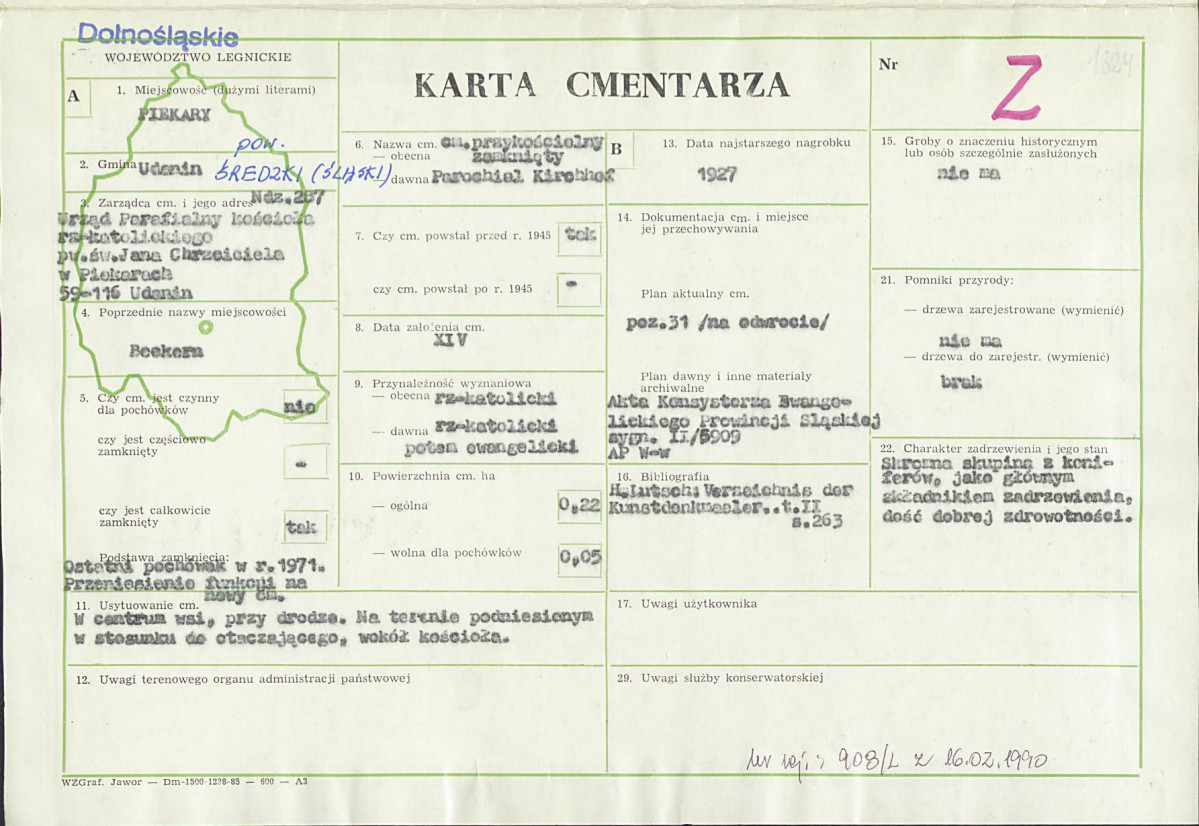 Dolnośląskie
WOJEWÓDZTWO LEGNICKIE
KARTA CMENTARZA
Nr
Z
1324
A
1. Miejscowość (dużymi literami)
PIEKARY
2. Gmina Udanin
pow.
ŚREDZKI (ŚLĄSKI)
3. Zarządca cm. i jego adres Ndz.287
Urząd Parafialny kościoła
rz-katolickiego
pw.św.Jana Chrzciciela
w Piekarach
59-116 Udanin
4. Poprzednie nazwy miejscowości
Beckern
5. Czy cm. jest czynny
dla pochówków
nie
czy jest częściowo
zamknięty
-
czy jest całkowicie
zamknięty
tak
Podstawa zamknięcia:
Ostatni pochówek w r.1971.
Przeniesienie funkcji na
nowy cm.
6. Nazwa cm. cm.przykościelny
— obecna zamknięty
dawna Parochial Kirchhof
7. Czy cm. powstał przed r. 1945 tak
czy cm. powstał po r. 1945 -
8. Data założenia cm.
XIV
9. Przynależność wyznaniowa
— obecna rz-katolicki
— dawna rz-katolicki
potem ewangelicki
10. Powierzchnia cm. ha
— ogólna 0,22
— wolna dla pochówków 0,05
B
13. Data najstarszego nagrobku
1927
14. Dokumentacja cm. i miejsce
jej przechowywania
Plan aktualny cm.
poz.31 /na odwrocie/
Plan dawny i inne materiały
archiwalne
Akta Konsystorza Ewange-
lickiego Prowincji Śląskiej
sygn. II/5909
AP W-w
16. Bibliografia
H.Lutsch: Verzeichnis der
Kunstdenkmaeler..t.II
s.263
15. Groby o znaczeniu historycznym
lub osób szczególnie zasłużonych
nie ma
21. Pomniki przyrody:
— drzewa zarejestrowane (wymienić)
nie ma
— drzewa do zarejestr. (wymienić)
brak
22. Charakter zadrzewienia i jego stan
Skromna skupina z koni-
ferów, jako głównym
składnikiem zadrzewienia,
dość dobrej zdrowotności.
11. Usytuowanie cm.
W centrum wsi, przy drodze. Na terenie podniesionym
w stosunku do otaczającego, wokół kościoła.
17. Uwagi użytkownika
12. Uwagi terenowego organu administracji państwowej
29. Uwagi służby konserwatorskiej
nr rej.: 908/L z 16.02.1990
WZGraf. Jawor — Dm-1500-1238-85 — 600 — A3